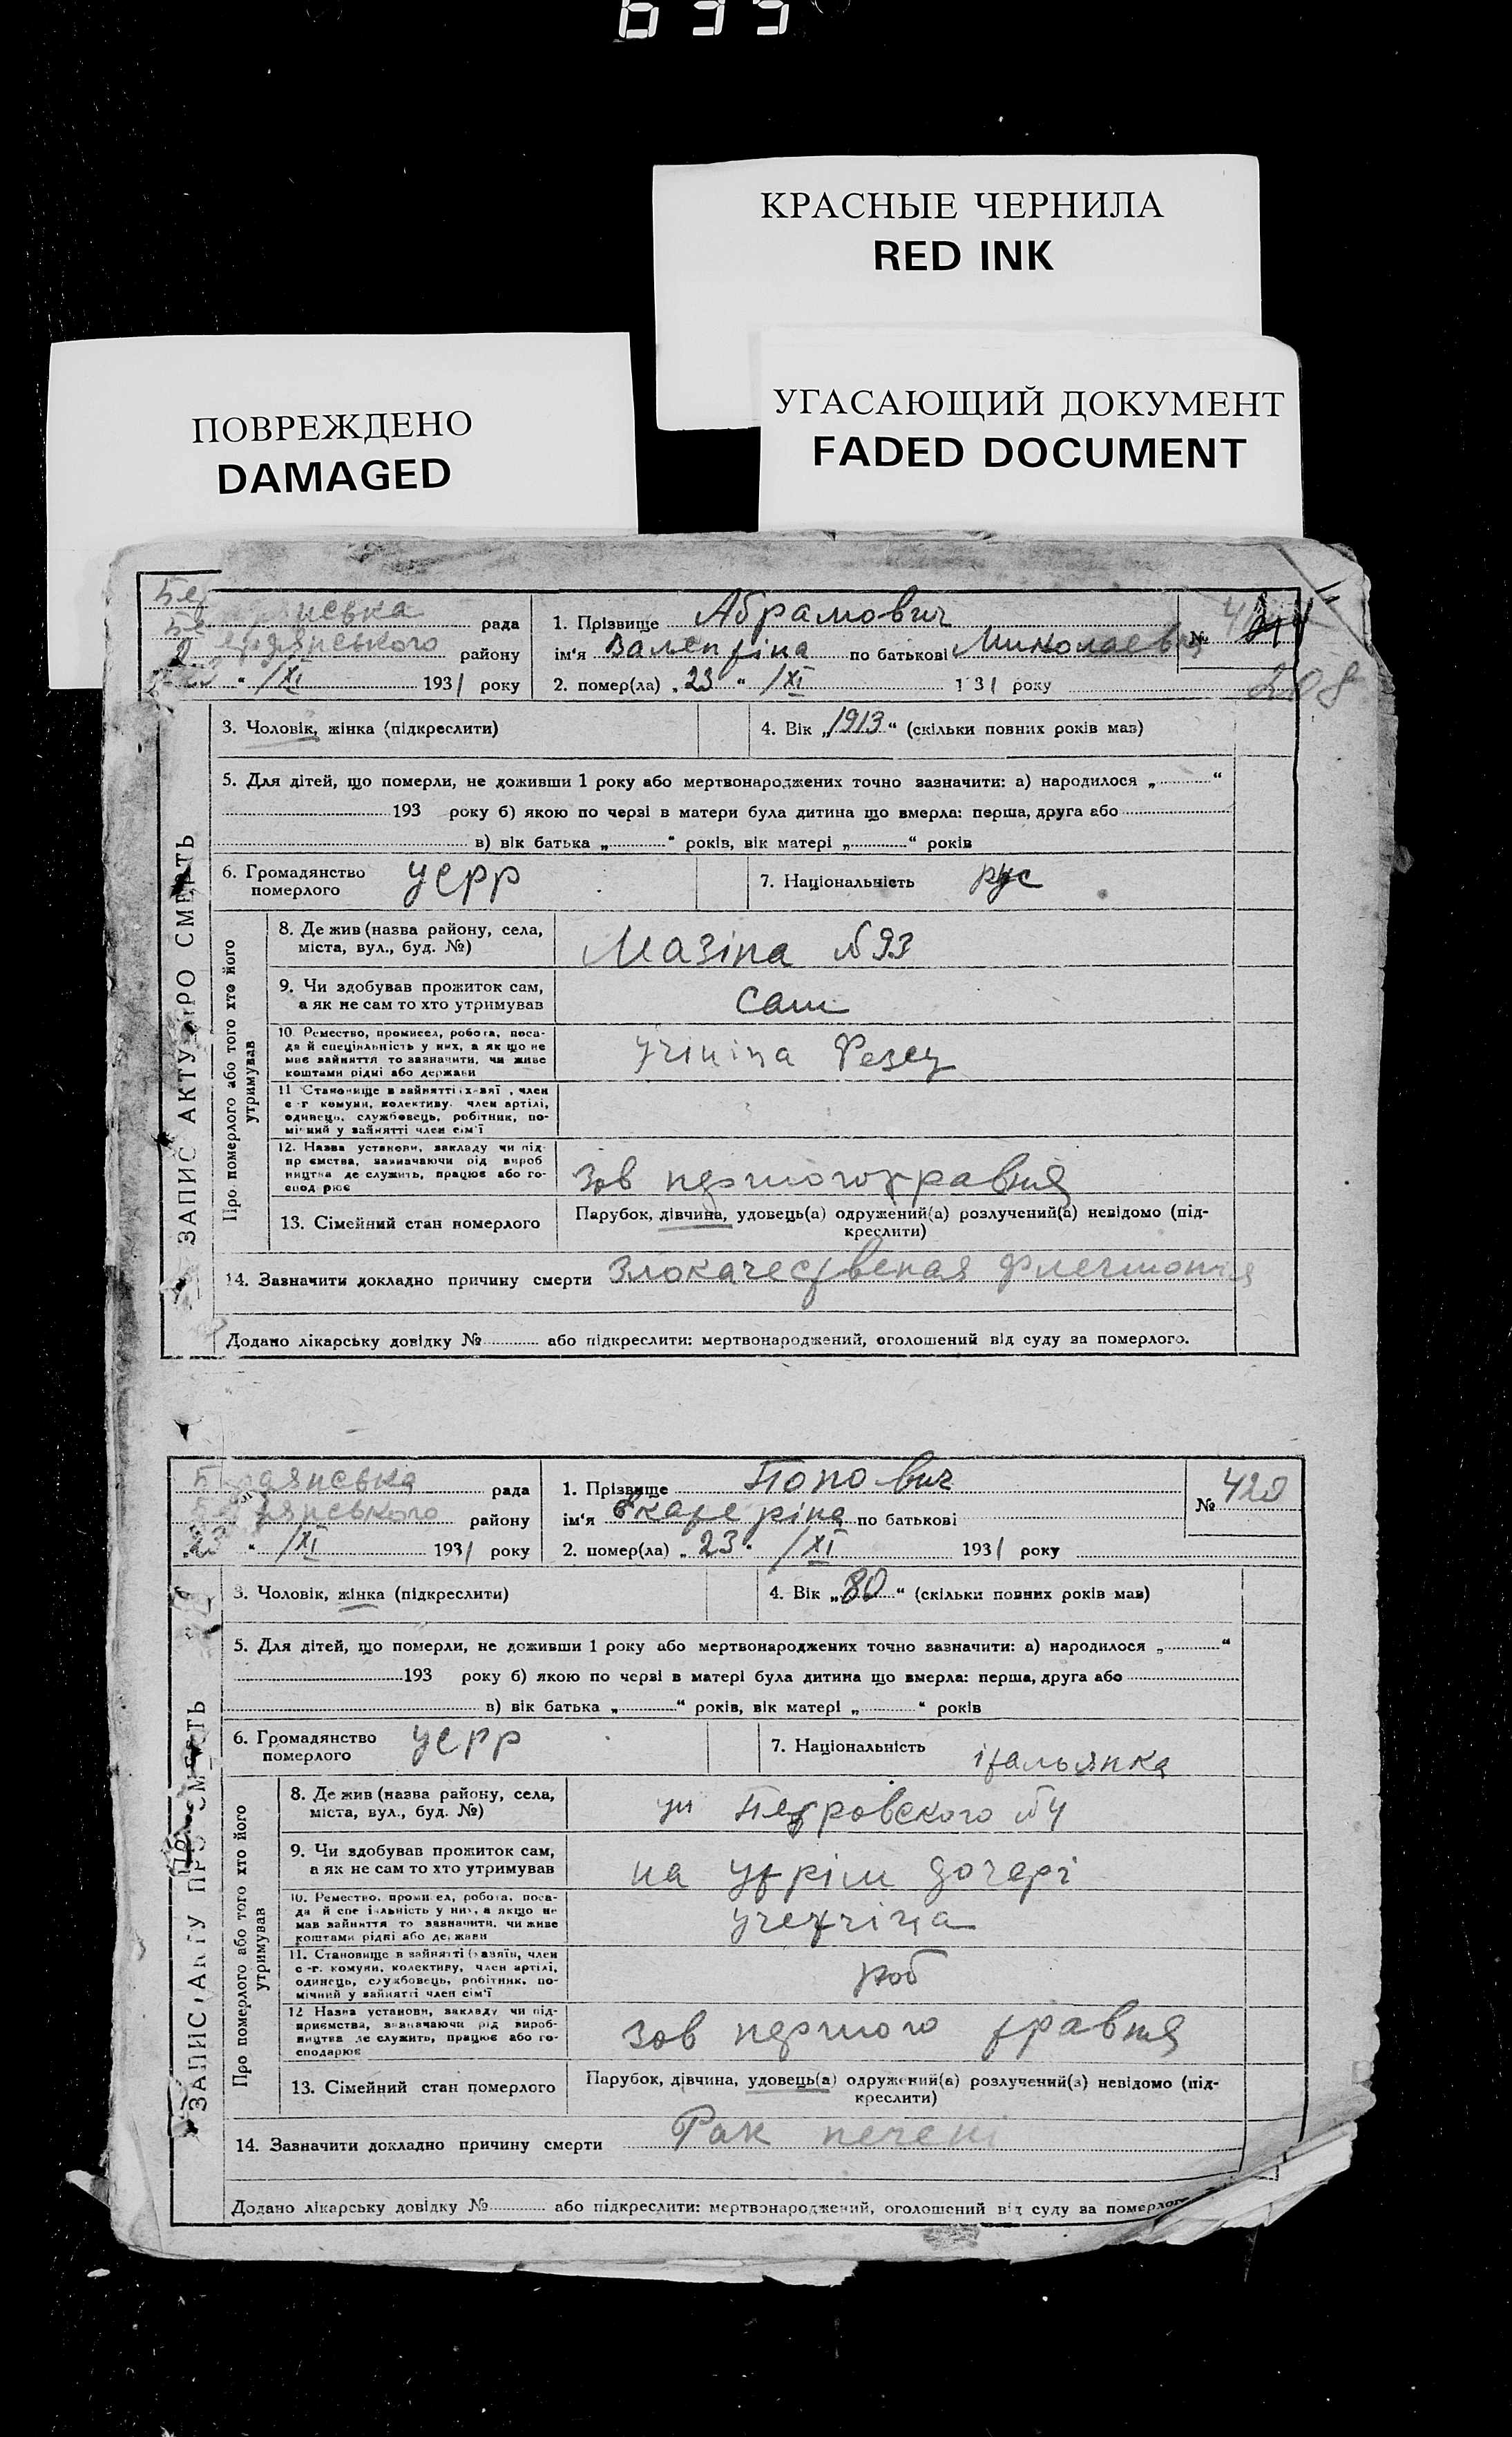 639
КРАСНЫЕ ЧЕРНИЛА
RED INK
УГАСАЮЩИЙ ДОКУМЕНТ
FADED DOCUMENT
ПОВРЕЖДЕНО
DAMAGED
ЗАПИС АКТУ ПРО СМЕРТЬ
рада
району
23 " /XI 1931 року
1. Прізвище Абрамович
ім'я Валентіна по батькові Миколаевна
2. помер(ла) „23" /XI 1 31 року
№
208
3. Чоловік, жінка (підкреслити)
4. Вік „1913" (скільки повних років мав)
5. Для дітей, що померли, не доживши 1 року або мертвонароджених точно зазначити: а) народилося „ "
193 року б) якою по черзі в матери була дитина що вмерла: перша, друга або
в) вік батька „ " років, вік матері „ " років
6. Громадянство померлого УСРР
7. Національність рус
Про померлого або того хто його утримував
8. Де жив (назва району, села, міста, вул., буд. №) Мазіна №93
9. Чи здобував прожиток сам, а як не сам то хто утримував сам
10. Ремество, промисел, робота, поса-
да й спеціальність у них, а як що не
має зайняття то зазначити, чи живе
коштами рідні або держави
11 Становище в зайнятті х-зяї , член
с -г комуни, колективу. член артілі,
одинець, службовець, робітник, по-
мічний у зайнятті член сім'ї
12. Назва установи, закладу чи під-
пр ємства, зазначаючи рід вироб
ництва де служить, працює або го-
спод рює
Зов першого травня
13. Сімейний стан померлого Парубок, дівчина, удовець(а) одружений(а) розлучений(а) невідомо (під-
креслити)
14. Зазначити докладно причину смерти Злокачественая Флегмония
Додано лікарську довідку № або підкреслити: мертвонароджений, оголошений від суду за померлого.
ЗАПИС АКТУ ПРО СМЕРТЬ
рада
району
„23 " /XI 1931 року
1. Прізвище Попович
ім'я Екатеріна по батькові
2. помер(ла) „23" /XI 1931 року
№ 420
3. Чоловік, жінка (підкреслити)
4. Вік „80" (скільки повних років мав)
5. Для дітей, що померли, не доживши 1 року або мертвонароджених точно зазначити: а) народилося „ "
193 року б) якою по черзі в матері була дитина що вмерла: перша, друга або
в) вік батька „ " років, вік матері „ " років
6. Громадянство померлого УСРР
7. Національність італьянка
Про померлого або того хто його утримував
8. Де жив (назва району, села, міста, вул., буд. №) ул Петровского №4
9. Чи здобував прожиток сам, а як не сам то хто утримував на утрім дочері
10. Ремество, проми ел, робота, поса-
да й спе іальність у них, а якщо не
мав зайняття то зазначити, чи живе
коштами рідні або держави
11. Становище в зайнятті (хазяїн, член
с -г. комуни, колективу, член артілі,
одинець, службовець, робітник, по-
мічний у зайнятті член сім'ї
роб
12 Назва установи, закладу чи під-
приємства, зазначаючи рід вироб-
ництва де служить, працює або го-
сподарює
Зов першого травня
13. Сімейний стан померлого Парубок, дівчина, удовець(а) одружений(а) розлучений(а) невідомо (під-
креслити)
14. Зазначити докладно причину смерти Рак печені
Додано лікарську довідку № або підкреслити: мертвонароджений, оголошений від суду за померлого